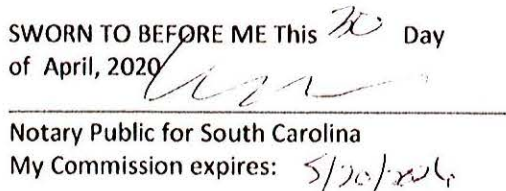 SWORN TO BEFORE ME This 20 Day
of April, 2020
Notary Public for South Carolina
My Commission expires: